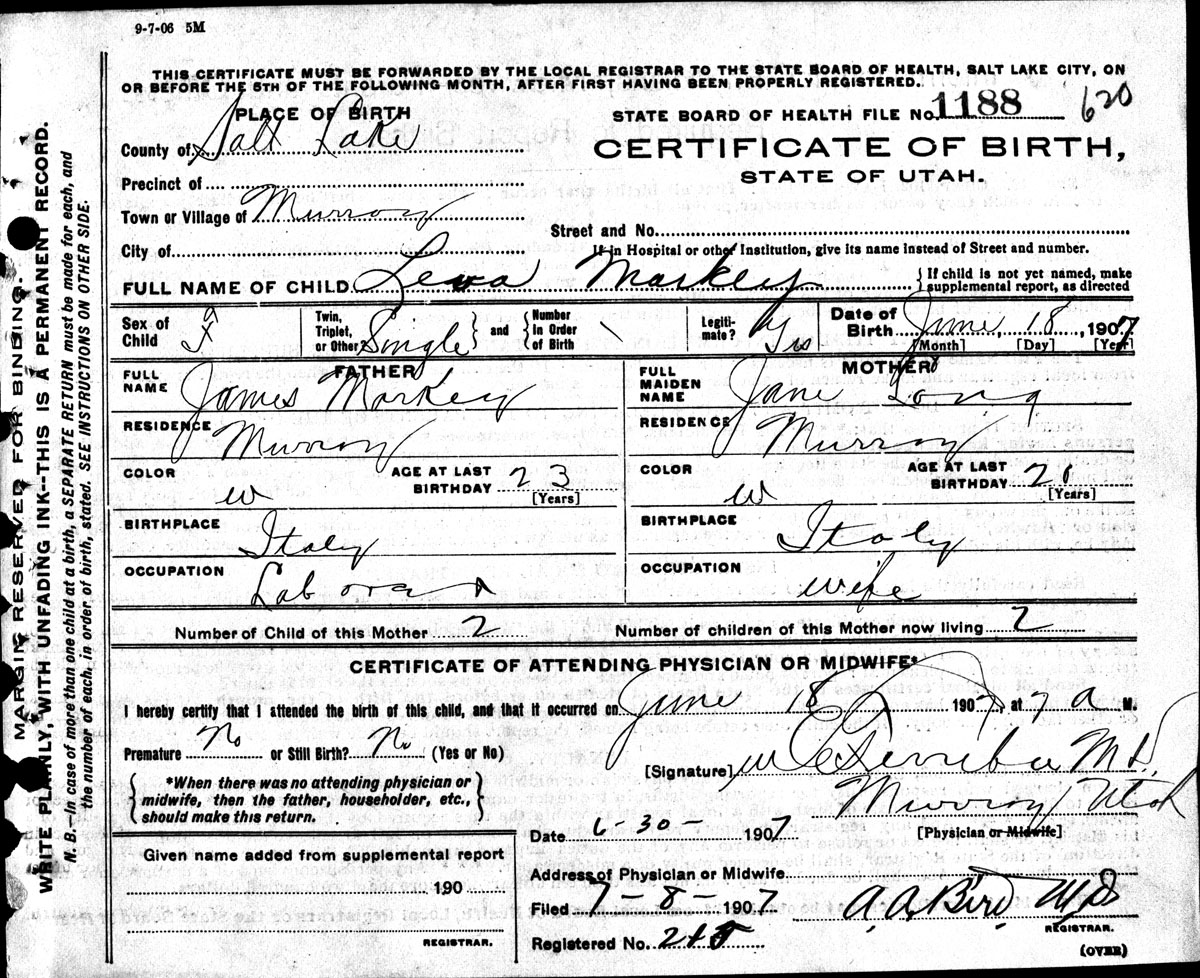 9-7-06 5M
THIS CERTIFICATE MUST BE FORWARDED BY THE LOCAL REGISTRAR TO THE STATE BOARD OF HEALTH, SALT LAKE CITY, ON
OR BEFORE THE 5TH OF THE FOLLOWING MONTH, AFTER FIRST HAVING BEEN PROPERLY REGISTERED.
PLACE OF BIRTH
STATE BOARD OF HEALTH FILE NO. 1188 620
County of Salt Lake
CERTIFICATE OF BIRTH,
STATE OF UTAH.
Precinct of
Town or Village of Murray
Street and No.
City of
If in Hospital or other Institution, give its name instead of Street and number.
FULL NAME OF CHILD Markey
{ If child is not yet named, make
supplemental report, as directed
Sex of Child
Twin, Triplet, or Other Single } and { Number in Order of Birth
Legiti- mate? Yes
Date of Birth June, 18, 1907
[Month] [Day] [Year]
FATHER
MOTHER
FULL NAME James Markey
FULL MAIDEN NAME Jane Long
RESIDENCE Murray
RESIDENCE Murray
COLOR W AGE AT LAST BIRTHDAY 23 [Years]
COLOR W AGE AT LAST BIRTHDAY [Years]
BIRTHPLACE Italy
BIRTHPLACE Italy
OCCUPATION
OCCUPATION wife
Number of Child of this Mother 2
Number of children of this Mother now living 2
CERTIFICATE OF ATTENDING PHYSICIAN OR MIDWIFE*
I hereby certify that I attended the birth of this child, and that it occurred on June 18 1907, at 7 a M.
Premature No or Still Birth? No (Yes or No)
[Signature] M.D.
Murray Utah
{ *When there was no attending physician or
midwife, then the father, householder, etc.,
should make this return. }
Date 6-30- 1907
[Physician or Midwife]
Given name added from supplemental report
190
REGISTRAR.
Address of Physician or Midwife
Filed 7-8- 1907 A. A. Bird MD
REGISTRAR.
Registered No.
(OVER)
MARGIN RESERVED FOR BINDING.
WRITE PLAINLY, WITH UNFADING INK--THIS IS A PERMANENT RECORD.
N. B.—In case of more than one child at a birth, a SEPARATE RETURN must be made for each, and
the number of each, in order of birth, stated. SEE INSTRUCTIONS ON OTHER SIDE.